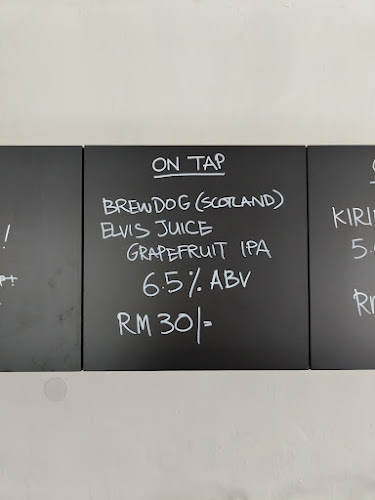 ON TAP
BREWDOG (SCOTLAND)
ELVIS JUICE
GRAPEFRUIT IPA
6.5% ABV
RM 30/=
!
KIRI
5.